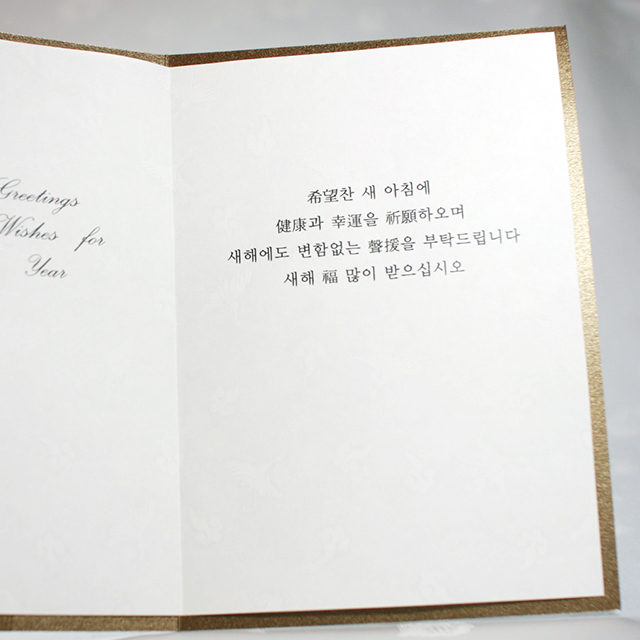 Greetings
Wishes for
Year
希望찬 새 아침에
健康과 幸運을 祈願하오며
새해에도 변함없는 聲援을 부탁드립니다
새해 福 많이 받으십시오